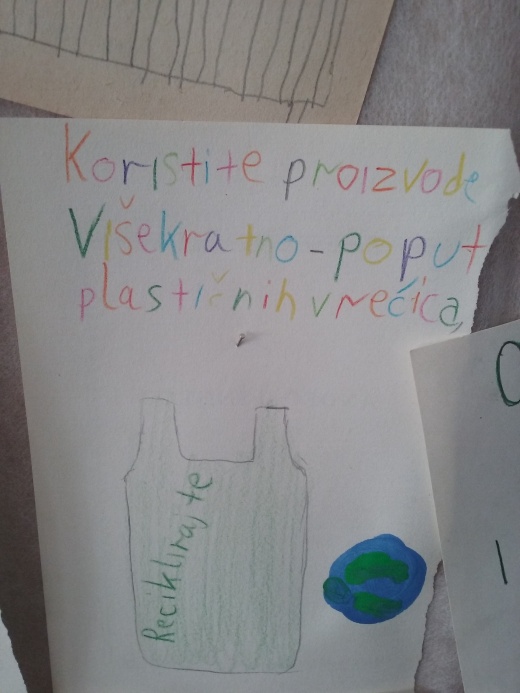 Koristite proizvode
Višekratno - poput
plastičnih vrećica,
Reciklirajte